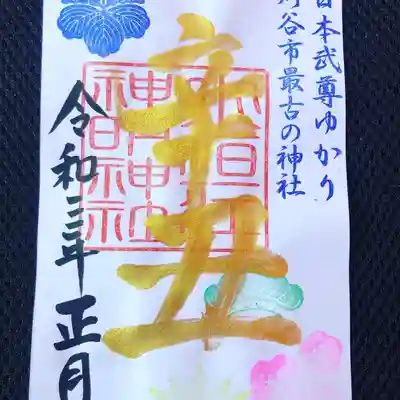 日本武尊ゆかり
刈谷市最古の神社
辛丑
令和三年 正月